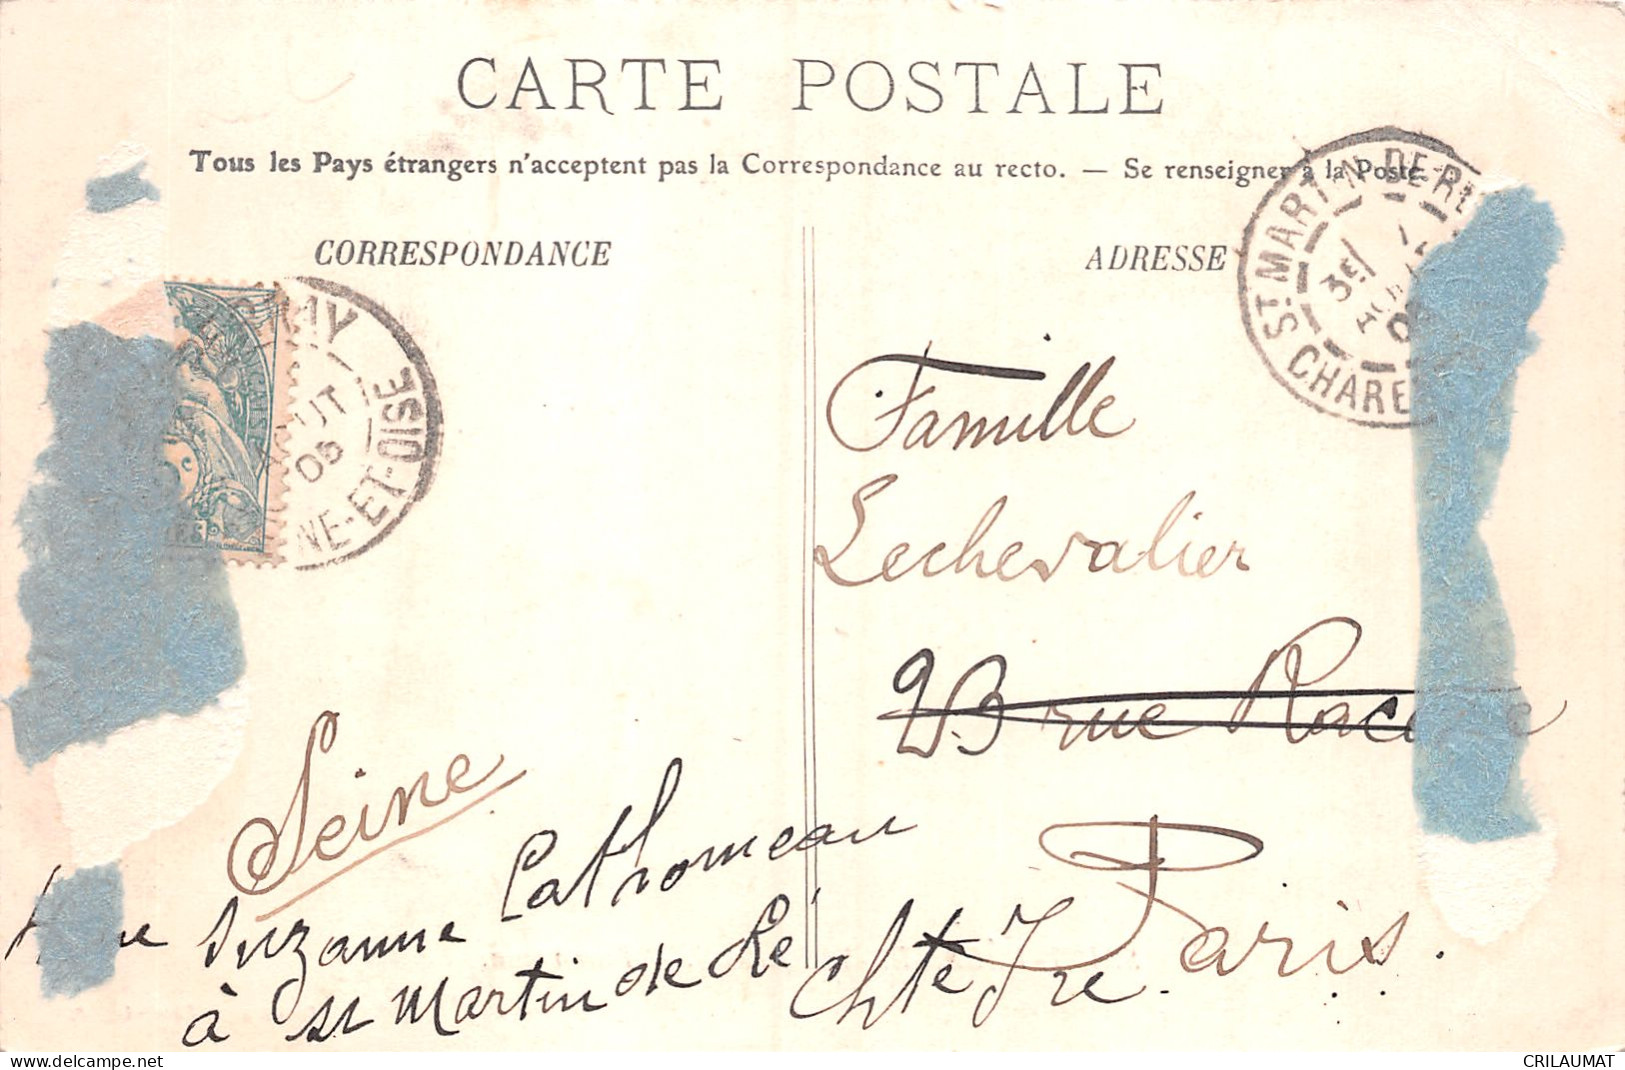 CARTE POSTALE
Tous les Pays étrangers n'acceptent pas la Correspondance au recto. — Se renseigner à la Poste.
CORRESPONDANCE
ADRESSE
ST MARTIN DE RE
3E/
08
CHARE
UT
08
NE-ET-OISE
Famille
Lechevalier
23 rue
Paris.
Seine
Suzanne Lathomeau
à St Martin de Ré Chte Ire
delcampe.net
CRILAUMAT